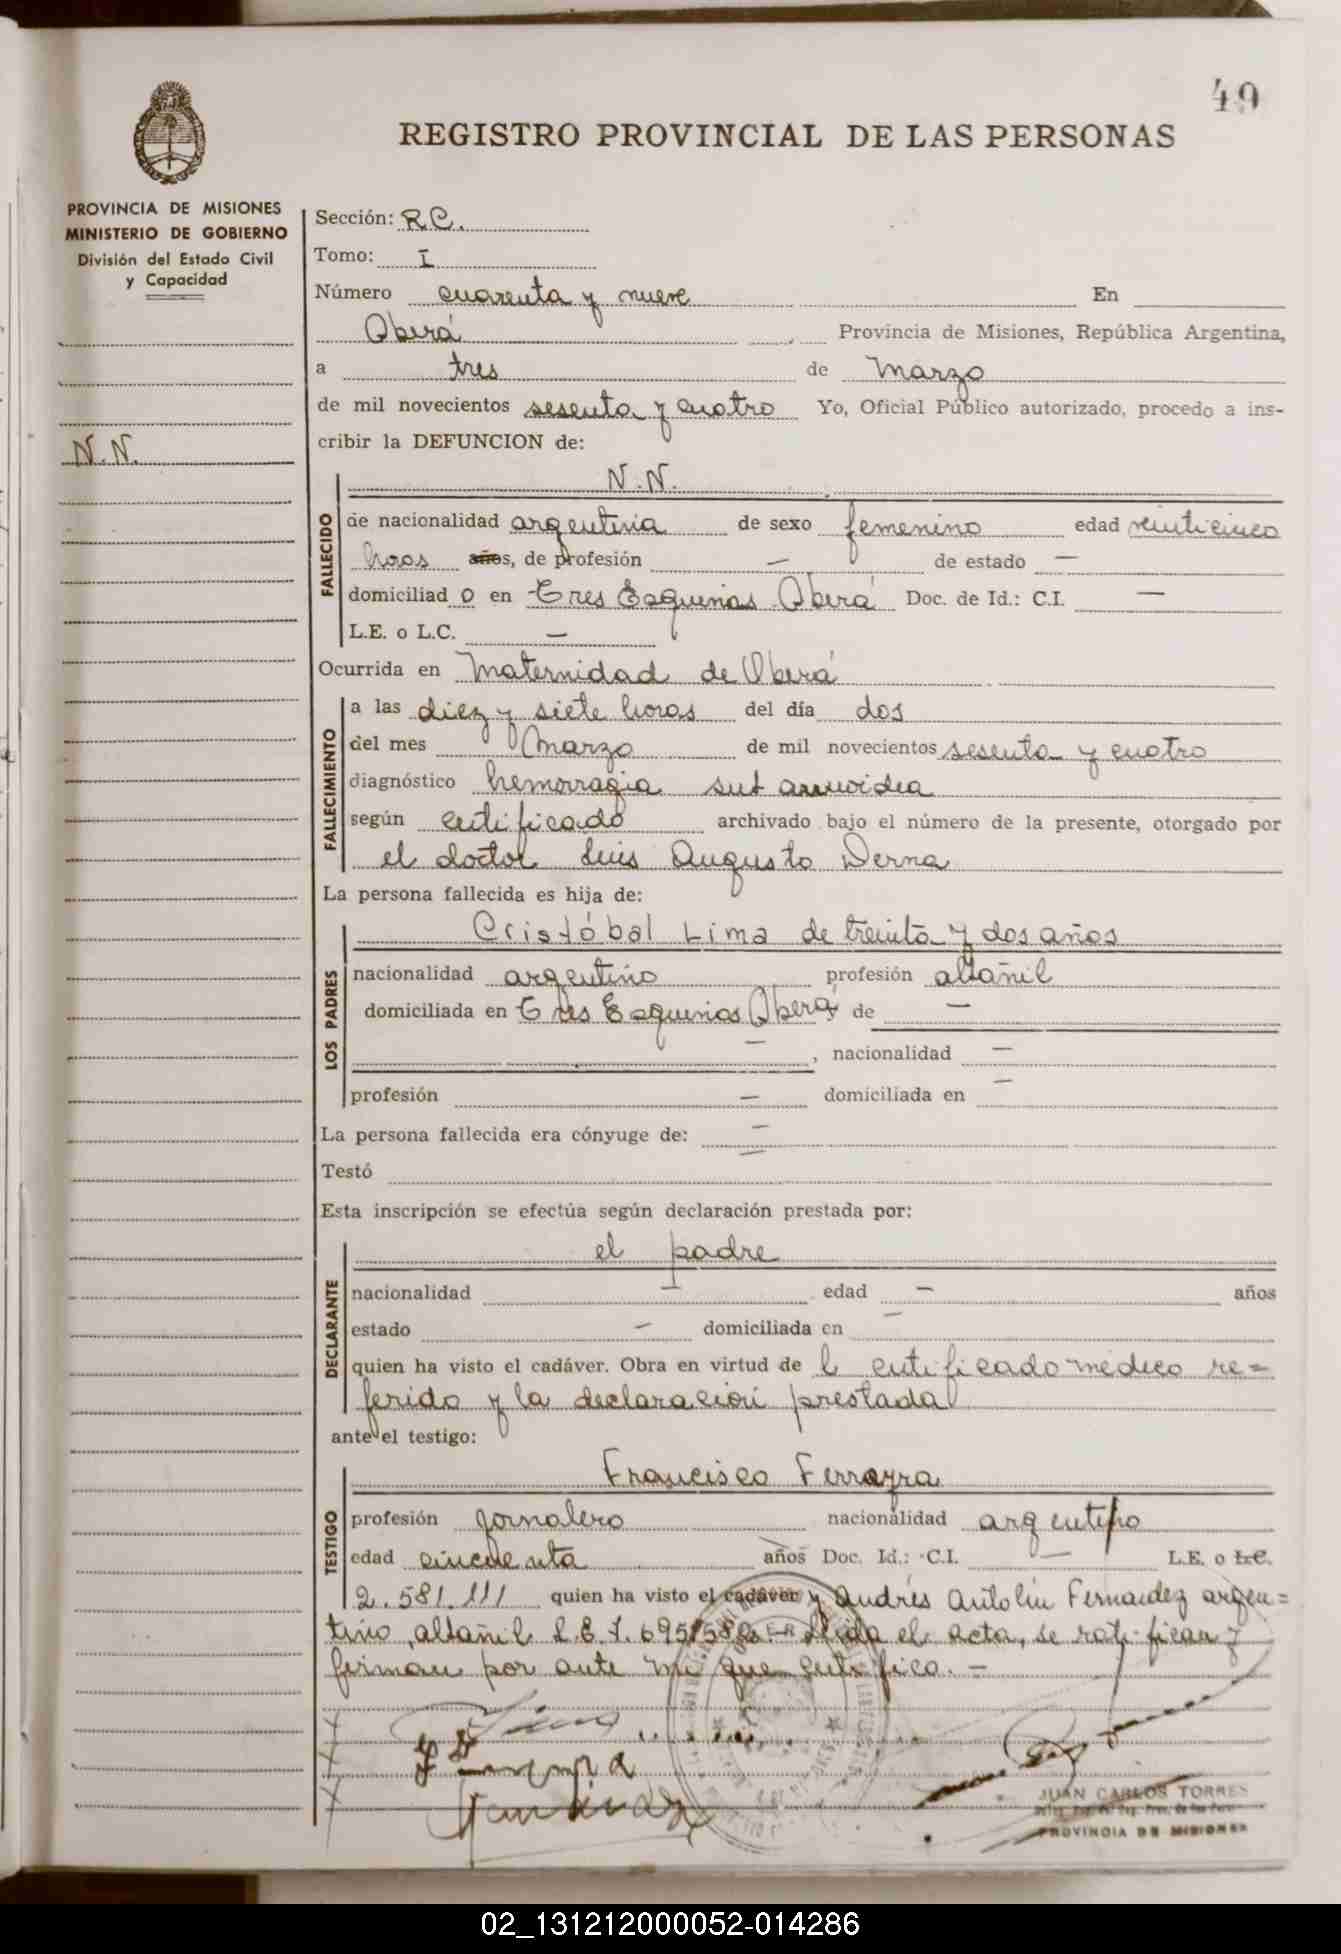 49
REGISTRO PROVINCIAL DE LAS PERSONAS
PROVINCIA DE MISIONES
MINISTERIO DE GOBIERNO
División del Estado Civil
y Capacidad
N.N.
Sección: R.C.
Tomo: I
Número cuarenta y nueve En
Oberá Provincia de Misiones, República Argentina,
a tres de Marzo
de mil novecientos sesenta y cuatro Yo, Oficial Público autorizado, procedo a ins-
cribir la DEFUNCION de:
FALLECIDO
N.N.
de nacionalidad argentina de sexo femenino edad veinticinco
horas años, de profesión — de estado —
domiciliado en Tres Esquinas Oberá Doc. de Id.: C.I. —
L.E. o L.C. —
Ocurrida en Maternidad de Oberá
FALLECIMIENTO
a las diez y siete horas del día dos
del mes Marzo de mil novecientos sesenta y cuatro
diagnóstico hemorragia sub
según certificado archivado bajo el número de la presente, otorgado por
el doctor Luis Augusto Derna
La persona fallecida es hija de:
LOS PADRES
Cristóbal Lima de treinta y dos años
nacionalidad argentino profesión albañil
domiciliada en Tres Esquinas Oberá y de —
— , nacionalidad —
profesión — domiciliada en —
La persona fallecida era cónyuge de: —
Testó —
Esta inscripción se efectúa según declaración prestada por:
DECLARANTE
el padre
nacionalidad — edad — años
estado — domiciliada en —
quien ha visto el cadáver. Obra en virtud de l certificado médico re=
ferido y la declaración prestada
ante el testigo:
TESTIGO
Francisco Ferrayra
profesión jornalero nacionalidad argentino
edad cincuenta años Doc. Id.: C.I. — L.E. o L.C.
2.581.111 quien ha visto el cadáver y Andrés Antolín Fernandez argen=
tino, albañil L.E. Leida el acta, se ratifican y
firman por ante mi que certifico. —
JUAN CARLOS TORRES
PROVINCIA DE MISIONES
02_131212000052-014286